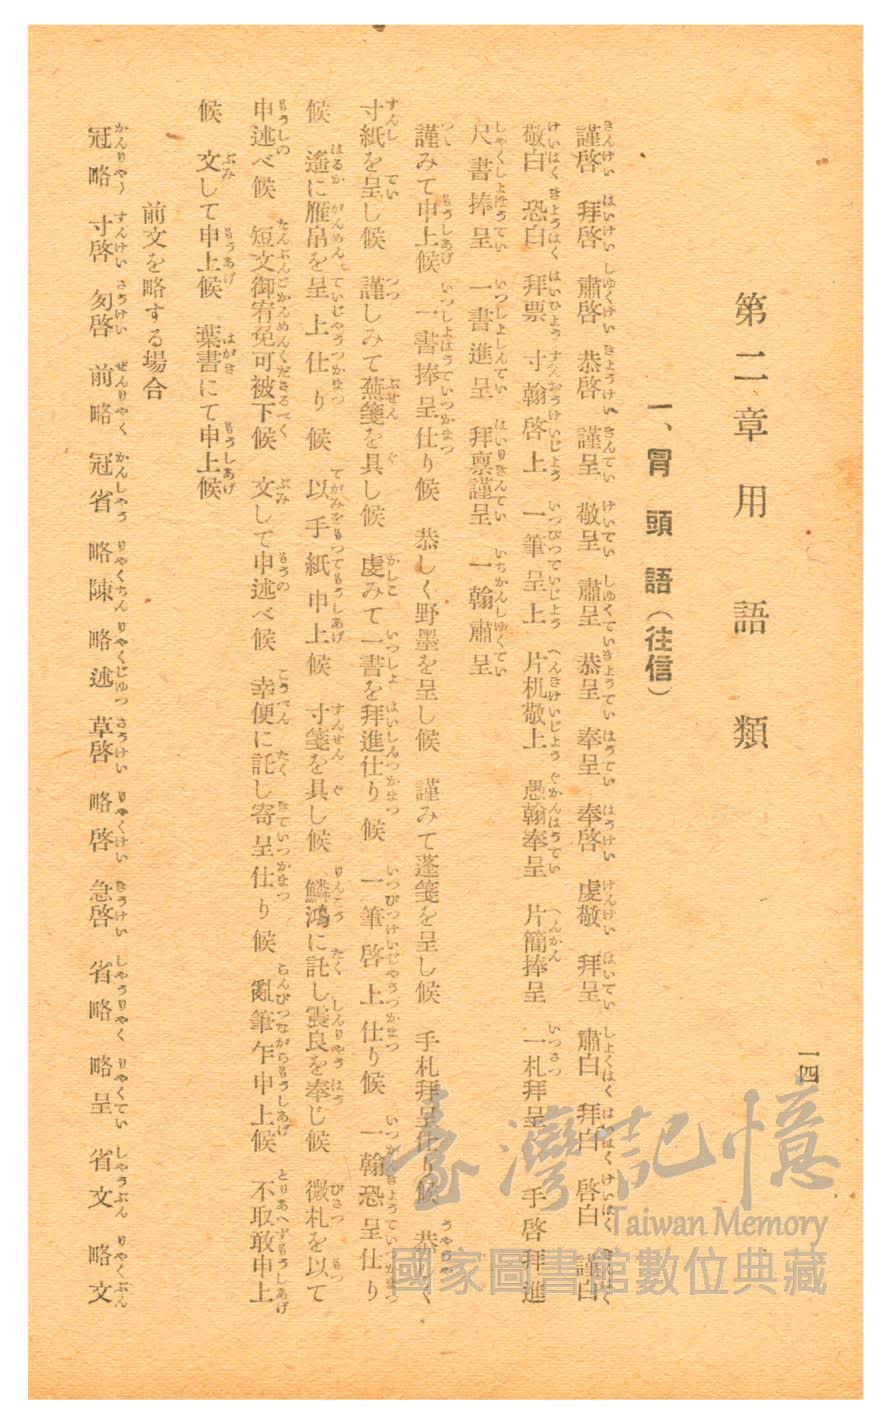 一四
第二章 用語類
一、冐頭語（往信）
謹啓 拜啓 肅啓 恭啓 謹呈 敬呈 肅呈 恭呈 奉呈 奉啓 虔敬 拜呈 肅白 拜白 啓白 謹白
敬白 恐白 拜票 寸翰啓上 一筆呈上 片机敬上 愚翰奉呈 片簡捧呈 一札拜呈 手啓拜進
尺書捧呈 一書進呈 拜禀謹呈 一翰肅呈
謹みて申上候 一書捧呈仕り候 恭しく野墨を呈し候 謹みて蓬箋を呈し候 手札拜呈仕り候 恭しく
寸紙を呈し候 謹しみて蕪箋を具し候 虔みて一書を拜進仕り候 一筆啓上仕り候 一翰恐呈仕り
候 遙に雁帛を呈上仕り候 以手紙申上候 寸箋を具し候 鱗鴻に託し震良を奉じ候 微札を以て
申述べ候 短文御宥免可被下候 文して申述べ候 幸便に託し寄呈仕り候 亂筆乍申上候 不取敢申上
候 文して申上候 葉書にて申上候
前文を略する場合
冠略 寸啓 匆啓 前略 冠省 略陳 略述 草啓 略啓 急啓 省略 略呈 省文 略文
臺灣記憶
Taiwan Memory
國家圖書館數位典藏